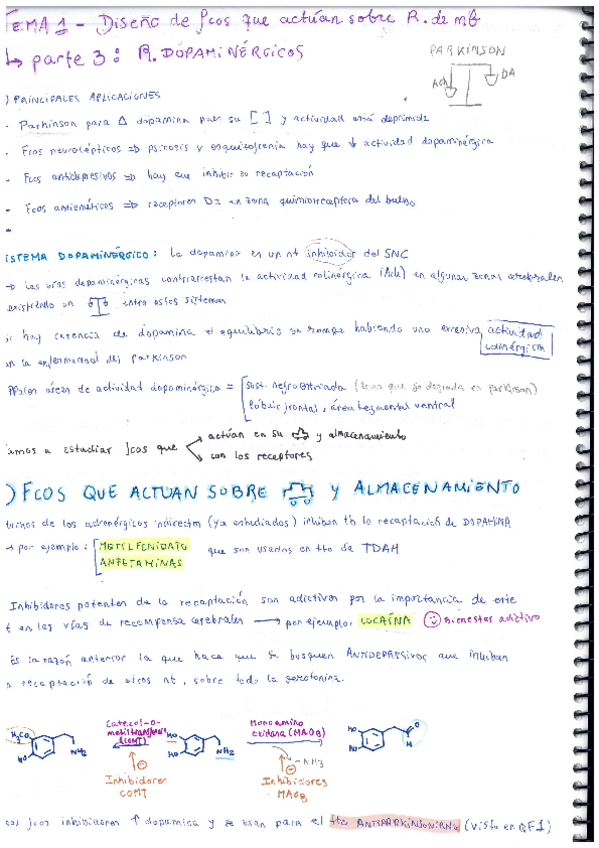 TEMA 1 - Diseño de fcos que actúan sobre R. de mb
↳ parte 3: R. DOPAMINÉRGICOS
PARKINSON
ACh DA
) PRINCIPALES APLICACIONES
- Parkinson para Δ dopamina pues su [ ] y actividad está deprimida
- Fcos neurolépticos => psicosis y esquizofrenia hay que ↓ actividad dopaminérgica
- Fcos antidepresivos => hay que inhibir su recaptación
- Fcos antieméticos => receptores D2 en zona quimiorreceptora del bulbo
ISTEMA DOPAMINÉRGICO: La dopamina es un nt inhibidor del SNC
→ Las vías dopaminérgicas contrarrestan la actividad colinérgica (ACh) en algunas zonas cerebrales
existiendo un entre estos sistemas
si hay carencia de dopamina el equilibrio se rompe habiendo una excesiva actividad colinérgica
en la enfermedad del parkinson
ppales áreas de actividad dopaminérgica = sust. negra estriada (zona que se degrada en parkinson)
lóbulo frontal, área tegmental ventral
amos a estudiar fcos que actúan en su y almacenamiento
con los receptores
) FCOS QUE ACTUAN SOBRE Y ALMACENAMIENTO
uchos de los adrenérgicos indirectos (ya estudiados) inhiben tb la recaptación de DOPAMINA
→ por ejemplo: METILFENIDATO que son usados en tto de TDAH
ANFETAMINAS
Inhibidores potentes de la recaptación son adictivos por la importancia de este
t en las vías de recompensa cerebrales → por ejemplo: COCAÍNA bienestar adictivo
Es la razón anterior la que hace que se busquen ANTIDEPRESIVOS que inhiban
a recaptación de otros nt, sobre todo la serotonina.
Catecol-O-metiltransferasa (COMT)
Monoamino oxidasa (MAOB)
H3CO HO NH2 HO HO NH2 - NH3 HO HO O H
Inhibidores COMT
Inhibidores MAOB
sos fcos inhibidores ↑ dopamina y se usan para el tto ANTIPARKINSONIANO (visto en QF1)